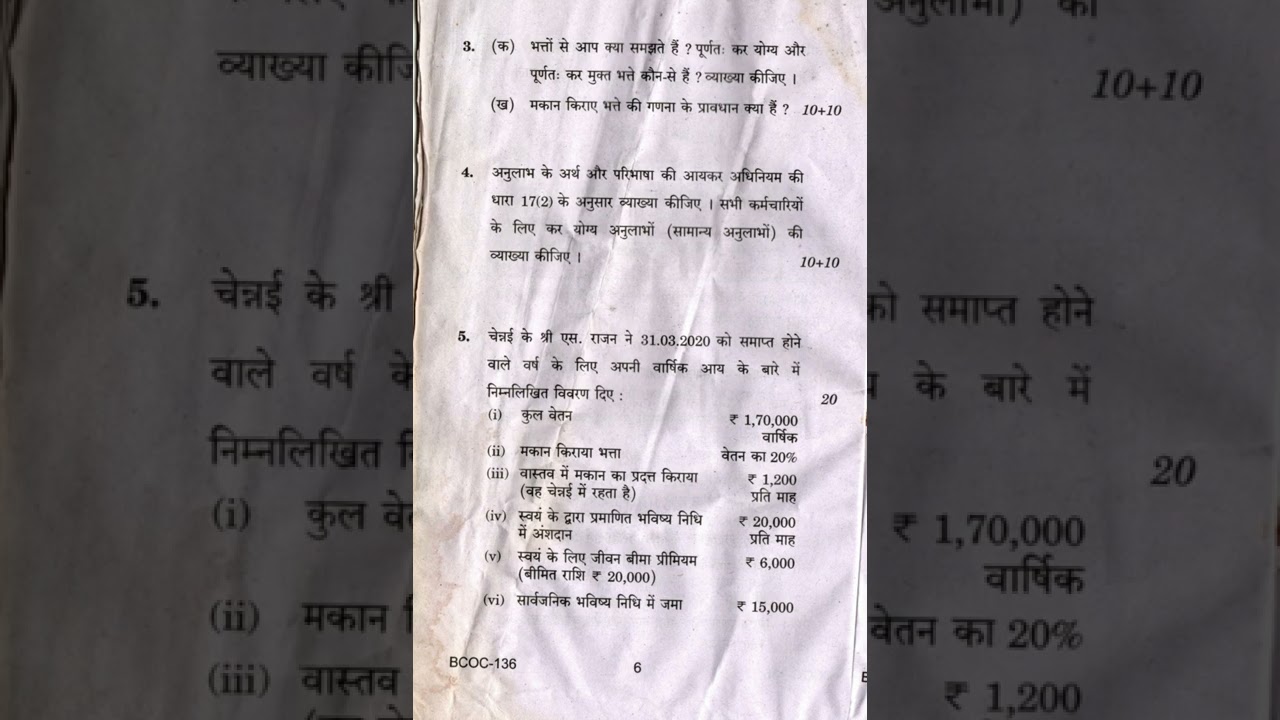 3. (क) भत्तों से आप क्या समझते हैं ? पूर्णतः कर योग्य और
पूर्णतः कर मुक्त भत्ते कौन-से हैं ? व्याख्या कीजिए ।
(ख) मकान किराए भत्ते की गणना के प्रावधान क्या हैं ? 10+10
4. अनुलाभ के अर्थ और परिभाषा की आयकर अधिनियम की
धारा 17(2) के अनुसार व्याख्या कीजिए । सभी कर्मचारियों
के लिए कर योग्य अनुलाभों (सामान्य अनुलाभों) की
व्याख्या कीजिए ।
10+10
5. चेन्नई के श्री एस. राजन ने 31.03.2020 को समाप्त होने
वाले वर्ष के लिए अपनी वार्षिक आय के बारे में
निम्नलिखित विवरण दिए :
20
(i) कुल वेतन ₹ 1,70,000
वार्षिक
(ii) मकान किराया भत्ता वेतन का 20%
(iii) वास्तव में मकान का प्रदत्त किराया ₹ 1,200
(वह चेन्नई में रहता है) प्रति माह
(iv) स्वयं के द्वारा प्रमाणित भविष्य निधि ₹ 20,000
में अंशदान प्रति माह
(v) स्वयं के लिए जीवन बीमा प्रीमियम ₹ 6,000
(बीमित राशि ₹ 20,000)
(vi) सार्वजनिक भविष्य निधि में जमा ₹ 15,000
BCOC-136 6